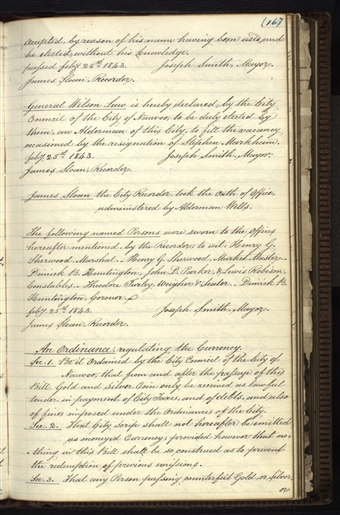 (167
accepted, by reason of his name having been used, and
he elected, without his knowledge.
passed feby. 25th 1843. Joseph Smith, Mayor.
James Sloan, Recorder.
General Wilson Law is hereby declared, by the City
Council of the City of Nauvoo, to be duly elected by
them, an Alderman of this City, to fill the vacancy
occasioned by the resignation of Stephen Markham.
feby. 25th 1843. Joseph Smith, Mayor.
James Sloan, Recorder.
James Sloan the City Recorder, took the Oath of Office,
administered by Alderman Wells.
The following named Persons were sworn to the offices
hereafter mentioned, by the Recorder, to wit; Henry G.
Sherwood Marshal. – Henry G. Sherwood, Market Master. –
Dimick B. Huntington, John L. Parker, & Lewis Robison,
Constables. – Theodore Turley, Weigher & Sealer. – Dimick B.
Huntington, Coroner.
feby. 25th 1843. Joseph Smith, Mayor.
James Sloan Recorder.
An Ordinance, regulating the Currency.
Sec. 1. Be it Ordained by the City Council of the City of
Nauvoo, that from and after the passage of this
Bill, Gold and Silver Coin only be received as lawful
tender in payment of City Taxes, and of debts, and also
of fines imposed under the Ordinances of the City.
Sec. 2. That City Scrip shall not hereafter be emitted
as moneyed Currency; provided however that no-
thing in this Bill shall be so construed as to prevent
the redemption of previous emissions.
Sec. 3. That any Person passing counterfeit Gold, or Silver,
or